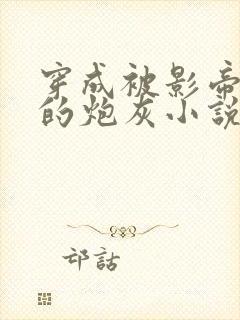 穿成被影帝
的炮灰小說
邙話